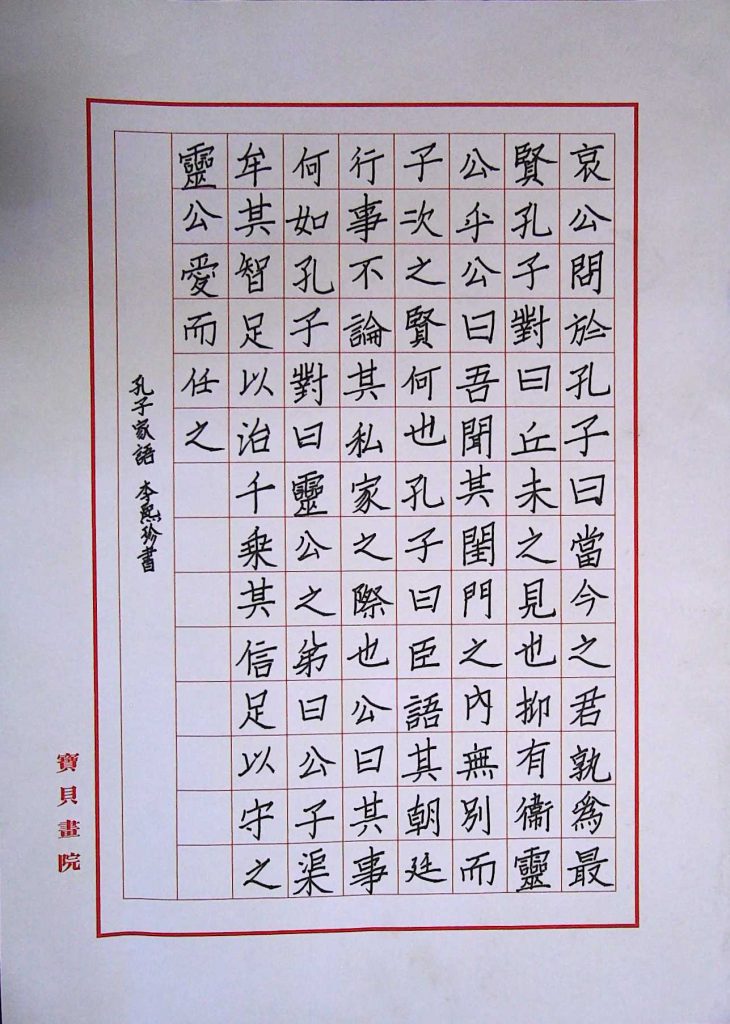 哀公問於孔子曰當今之君孰爲最
賢孔子對曰丘未之見也抑有衞靈
公乎公曰吾聞其閨門之內無別而
子次之賢何也孔子曰臣語其朝廷
行事不論其私家之際也公曰其事
何如孔子對曰靈公之弟曰公子渠
牟其智足以治千乗其信足以守之
靈公愛而任之
孔子家語 李熙珍書
寶貝畫院